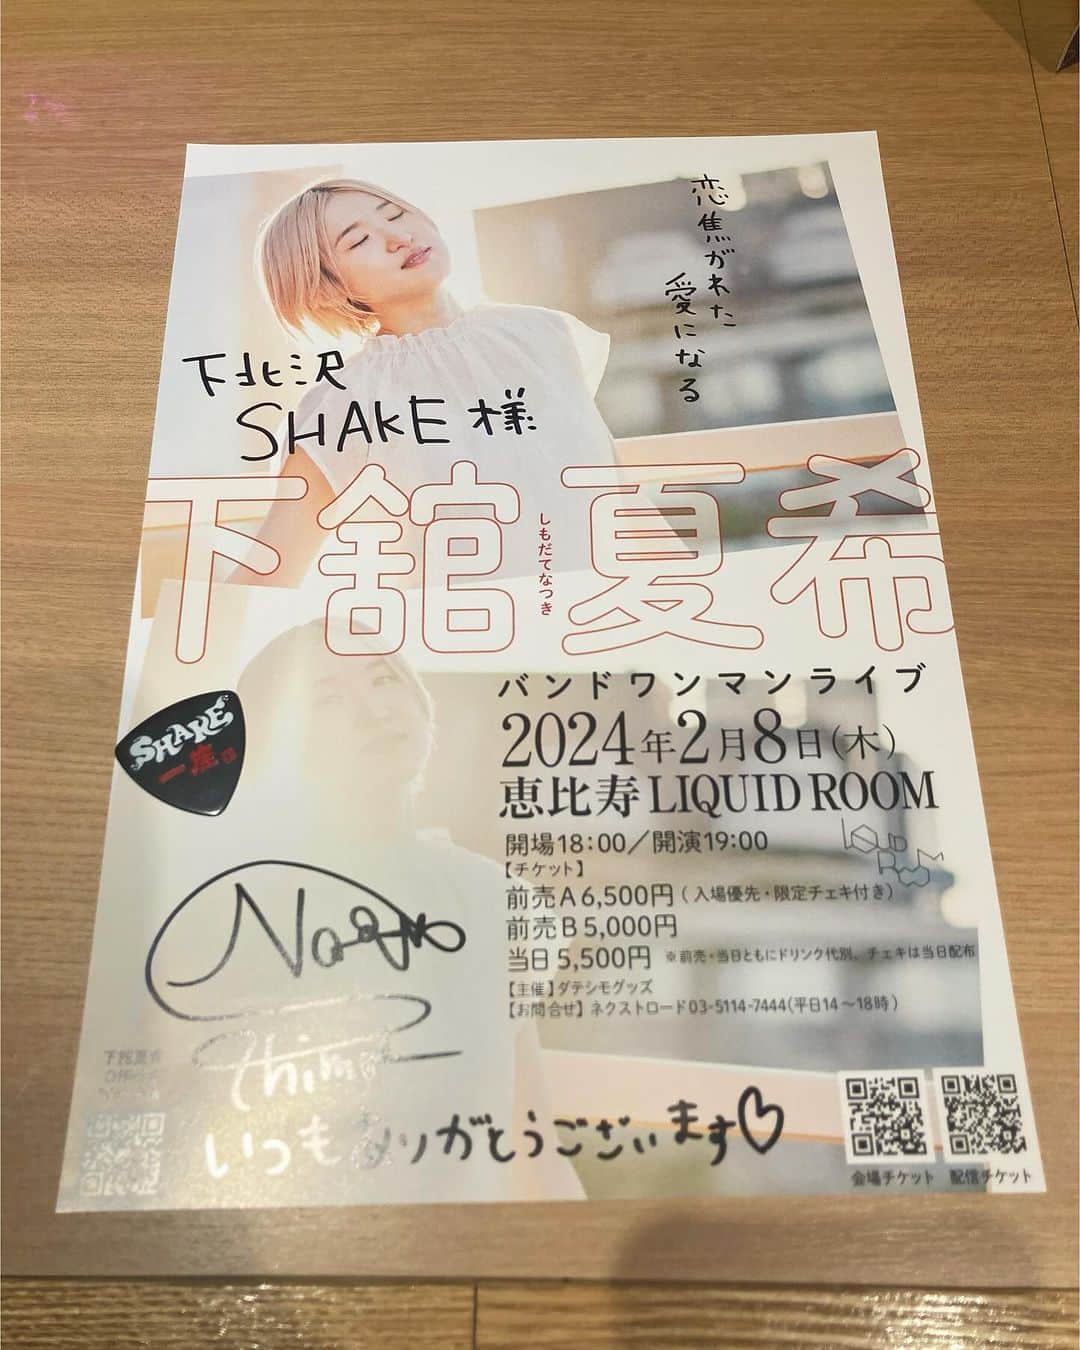 恋焦がれた
愛になる
下北沢
SHAKE 様
下舘夏希
しもだてなつき
バンドワンマンライブ
2024年2月8日(木)
恵比寿 LIQUID ROOM
開場18:00/開演19:00
LIQUID ROOM
【チケット】
前売A 6,500円(入場優先・限定チェキ付き)
前売B 5,000円
当日 5,500円 ※前売・当日ともにドリンク代別、チェキは当日配布
【主催】ダテシモグッズ
【お問合せ】ネクストロード03-5114-7444(平日14〜18時)
SHAKE
一座。
いつもありがとうございます♡
会場チケット
配信チケット